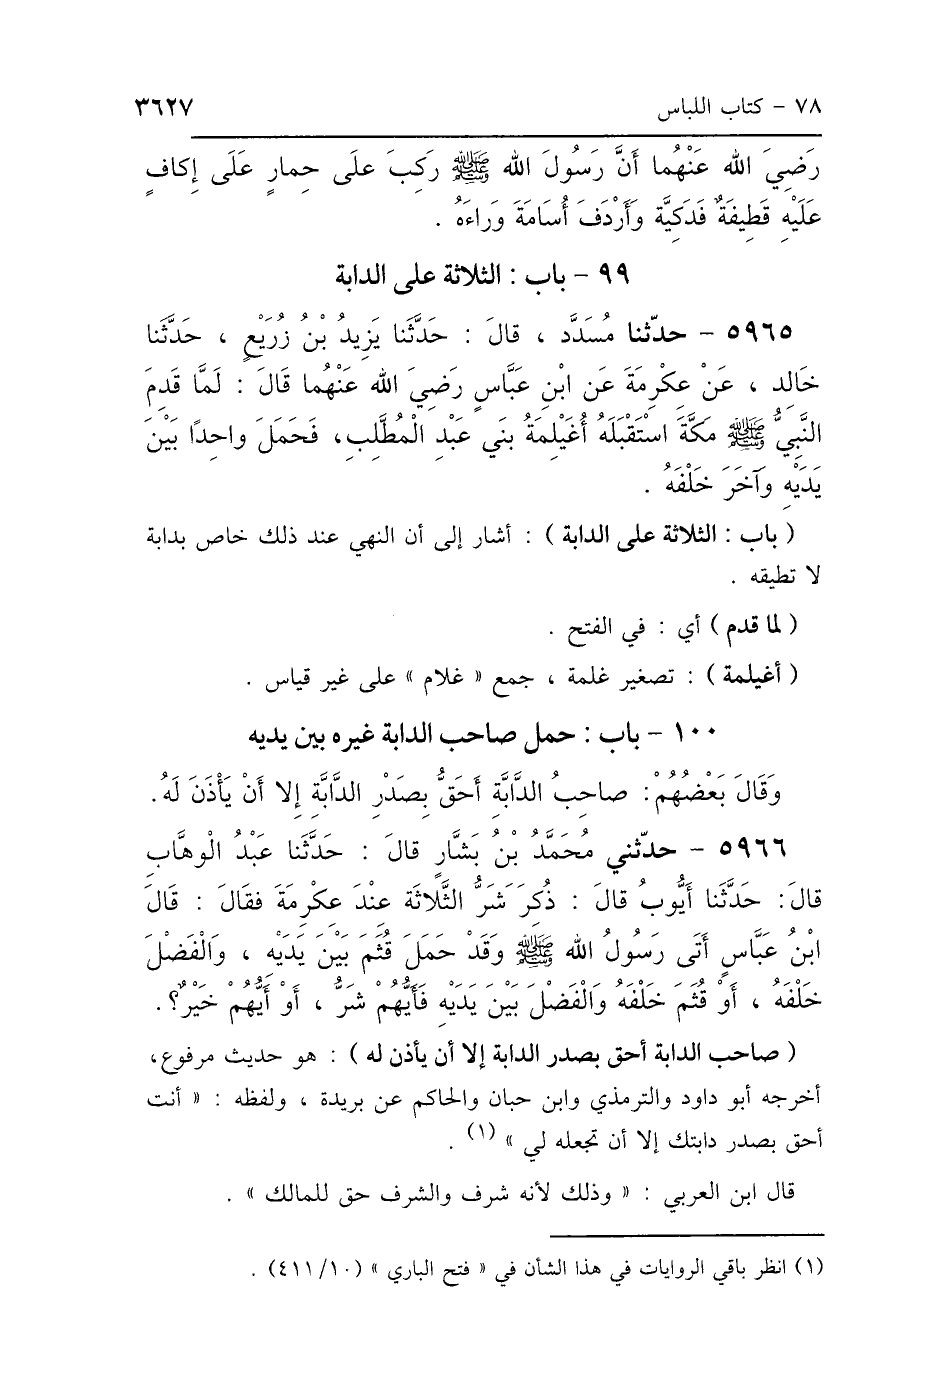 ٧٨ - كتاب اللباس ٣٦٢٧
رَضِيَ الله عَنْهُما أَنَّ رَسُولَ الله ﷺ رَكِبَ على حِمارٍ عَلَى إكافٍ
عَلَيْهِ قَطِيفَةٌ فَدَكِيَّة وَأَرْدَفَ أُسَامَةَ وَرَاءَهُ .
٩٩ - باب : الثلاثة على الدابة
٥٩٦٥ - حدّثنا مُسَدَّد ، قالَ : حَدَّثَنا يَزِيدُ بْنُ زُرَيْعٍ ، حَدَّثَنا
خَالِد ، عَنْ عِكْرِمَةَ عَنِ ابْنِ عَبَّاسٍ رَضِيَ الله عَنْهُما قَالَ : لَمَّا قَدِمَ
النَّبِيُّ ﷺ مَكَّةَ اسْتَقْبَلَهُ أُغَيْلِمَةُ بَنِي عَبْدِ الْمُطَّلِبِ، فَحَمَلَ واحِدًا بَيْنَ
يَدَيْهِ وَآخَرَ خَلْفَهُ .
( باب : الثلاثة على الدابة ) : أشار إلى أن النهي عند ذلك خاص بدابة
لا تطيقه .
( لما قدم ) أي : في الفتح .
( أغيلمة ) : تصغير غلمة ، جمع « غلام » على غير قياس .
١٠٠ - باب : حمل صاحب الدابة غيره بين يديه
وَقَالَ بَعْضُهُمْ: صاحِبُ الدَّابَّةِ أَحَقُّ بِصَدْرِ الدَّابَّةِ إلا أنْ يَأْذَنَ لَهُ.
٥٩٦٦ - حدّثني مُحَمَّدُ بْنُ بَشَّارٍ قالَ : حَدَّثَنا عَبْدُ الْوهَّابِ
قالَ: حَدَّثَنا أَيُّوبُ قالَ : ذُكِرَ شَرُّ الثَّلاثَةِ عِنْدَ عِكْرِمَةَ فقالَ : قَالَ
ابْنُ عَبَّاسٍ أَتَى رَسُولُ الله ﷺ وَقَدْ حَمَلَ قُثَمَ بَيْنَ يَدَيْهِ ، وَالْفَضْلَ
خَلْفَهُ ، أَوْ قُثَمَ خَلْفَهُ وَالْفَضْلَ بَيْنَ يَدَيْهِ فَأَيُّهُمْ شَرُّ ، أَوْ أَيُّهُمْ خَيْرٌ؟.
( صاحب الدابة أحق بصدر الدابة إلا أن يأذن له ) : هو حديث مرفوع،
أخرجه أبو داود والترمذي وابن حبان والحاكم عن بريدة ، ولفظه : « أنت
أحق بصدر دابتك إلا أن تجعله لي » (١) .
قال ابن العربي : « وذلك لأنه شرف والشرف حق للمالك » .
(١) انظر باقي الروايات في هذا الشأن في « فتح الباري » (٤١١/١٠) .